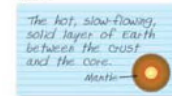 The hot, slow-flowing,
solid layer of Earth
between the crust
and the core.
Mantle